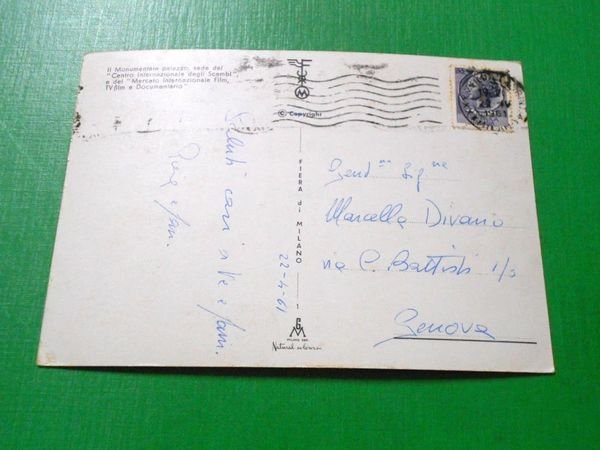 Il Monumentale palazzo, sede del
"Centro Internazionale degli Scambi"
e del "Mercato Internazionale Film,
TVfilm e Documentario"
© Copyright
FIERA di MILANO
1
Saluti cari a te e fam.
e fam.
22-4-61
Gent.ma Sig.na
Marcella Divano
via C. Battisti 1/8
Genova